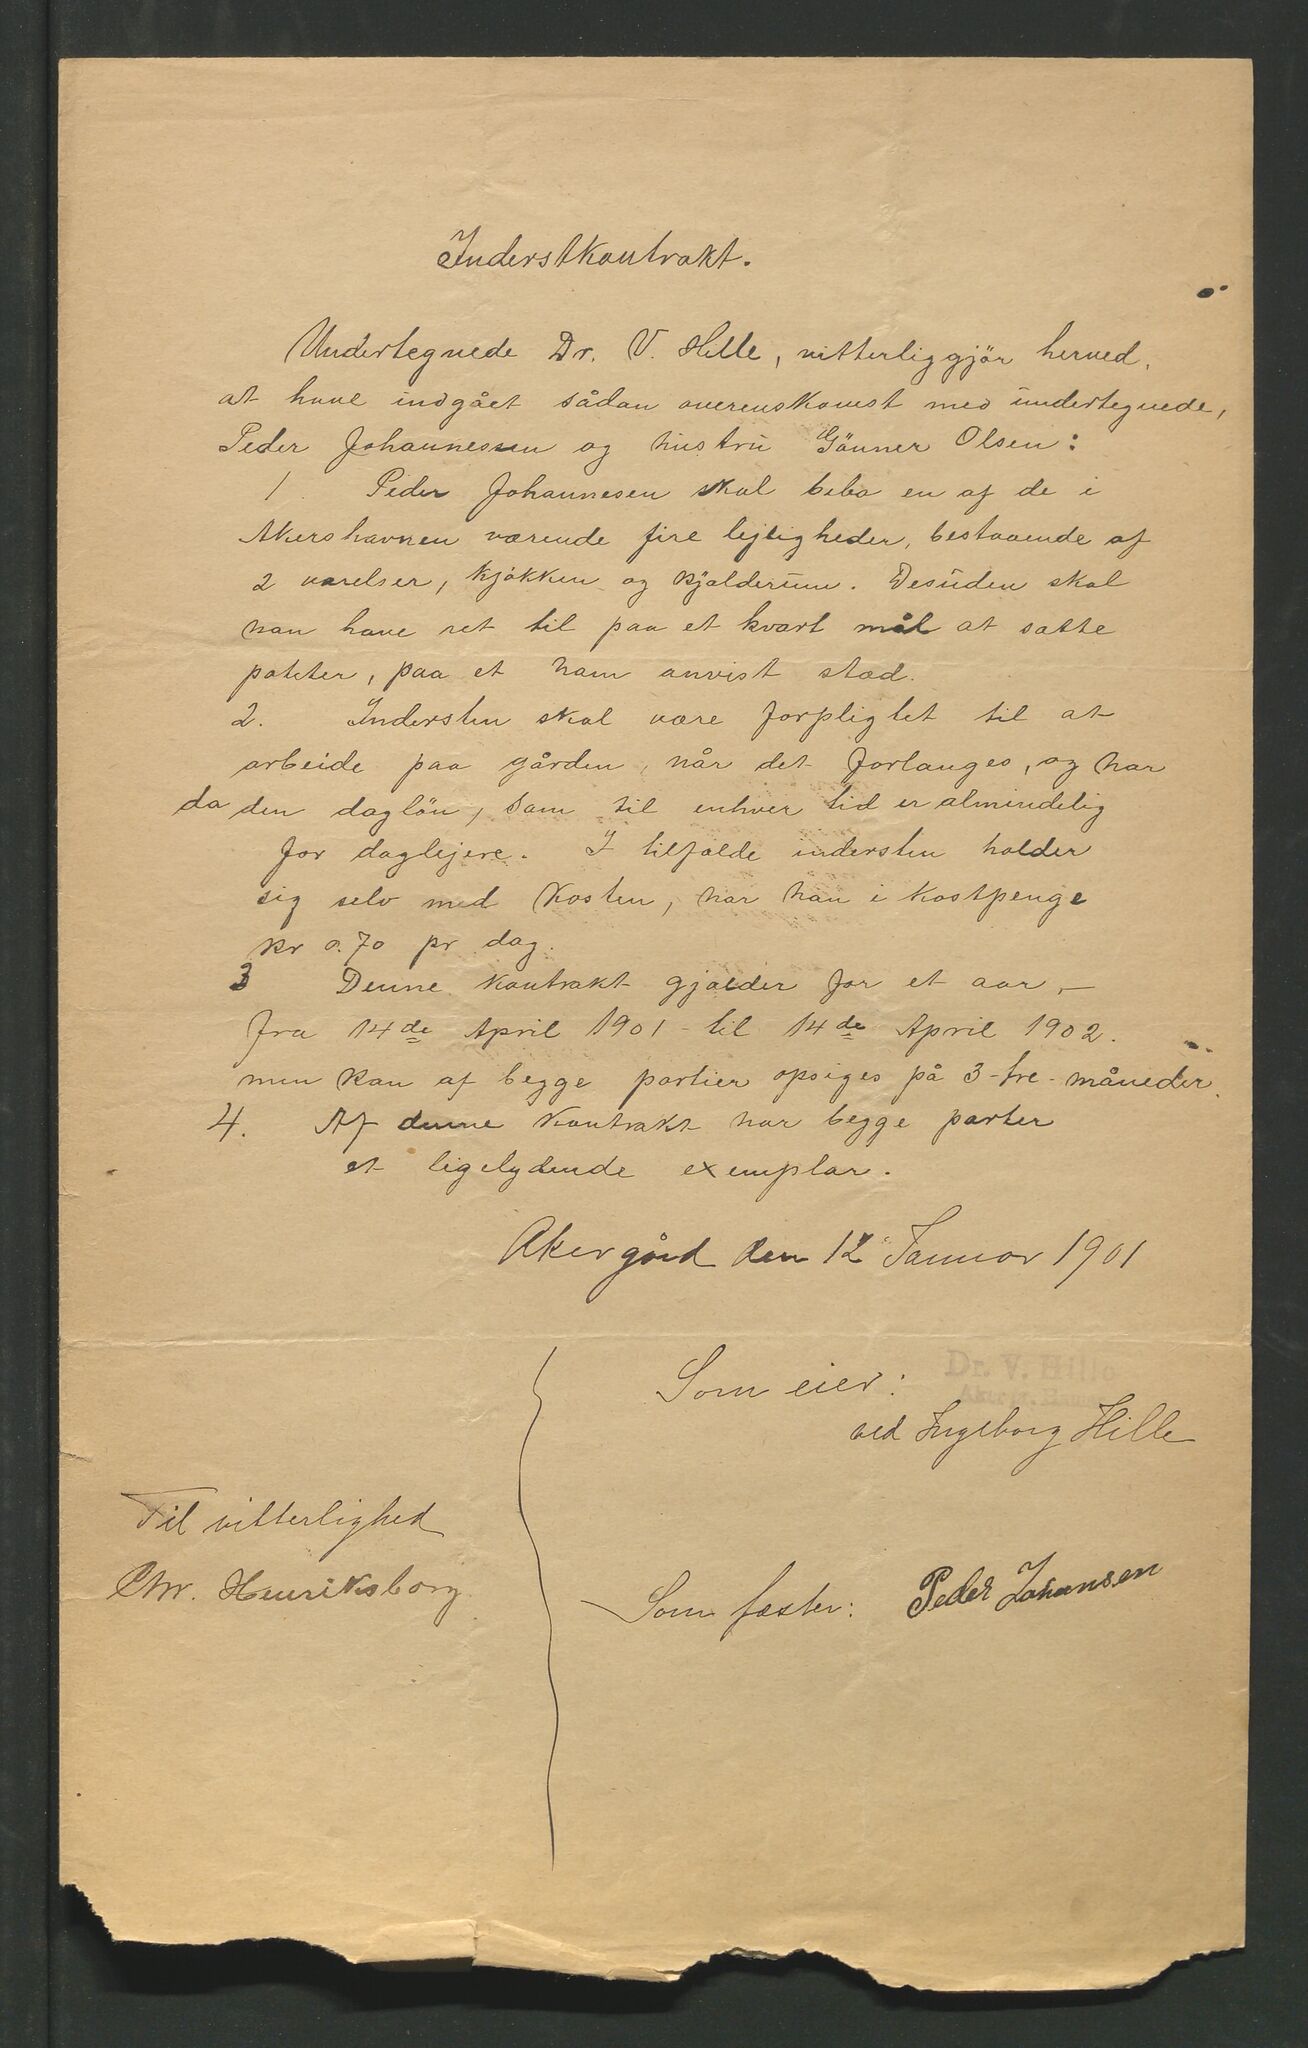 Inderstkontrakt.
Undertegnede Dr. V. Hille, vitterliggjör herved,
at have indgået sådan overenskomst med undertegnede,
Peder Johannessen og hustru Gönner Olsen:
1. Peder Johannesen skal bebo en af de i
Akershavnen værende fire lejligheder, bestaaende af
2 værelser, kjøkken og kjælderum. Desuden skal
han have ret til paa et kvart mål at sætte
poteter, paa et ham anvist sted.
2. Indersten skal være forpligtet til at
arbeide paa gården, når det forlanges, og har
da den daglön, som til enhver tid er almindelig
for daglejere. I tilfælde indersten holder
sig selv med kosten, har han i kostpenge
kr 0.70 pr dag.
3 Denne kontrakt gjælder for et aar, –
fra 14de April 1901 – til 14de April 1902.
men kan af begge partier opsiges på 3 - tre - måneder.
4. Af denne kontrakt har begge parter
et ligelydende exemplar.
Aker gård den 12 Januar 1901
Som eier: Dr. V. Hille
ved Ingeborg Hille
Til vitterlighed
Chr. Henriksborg
Som fæster: Peder Johansen